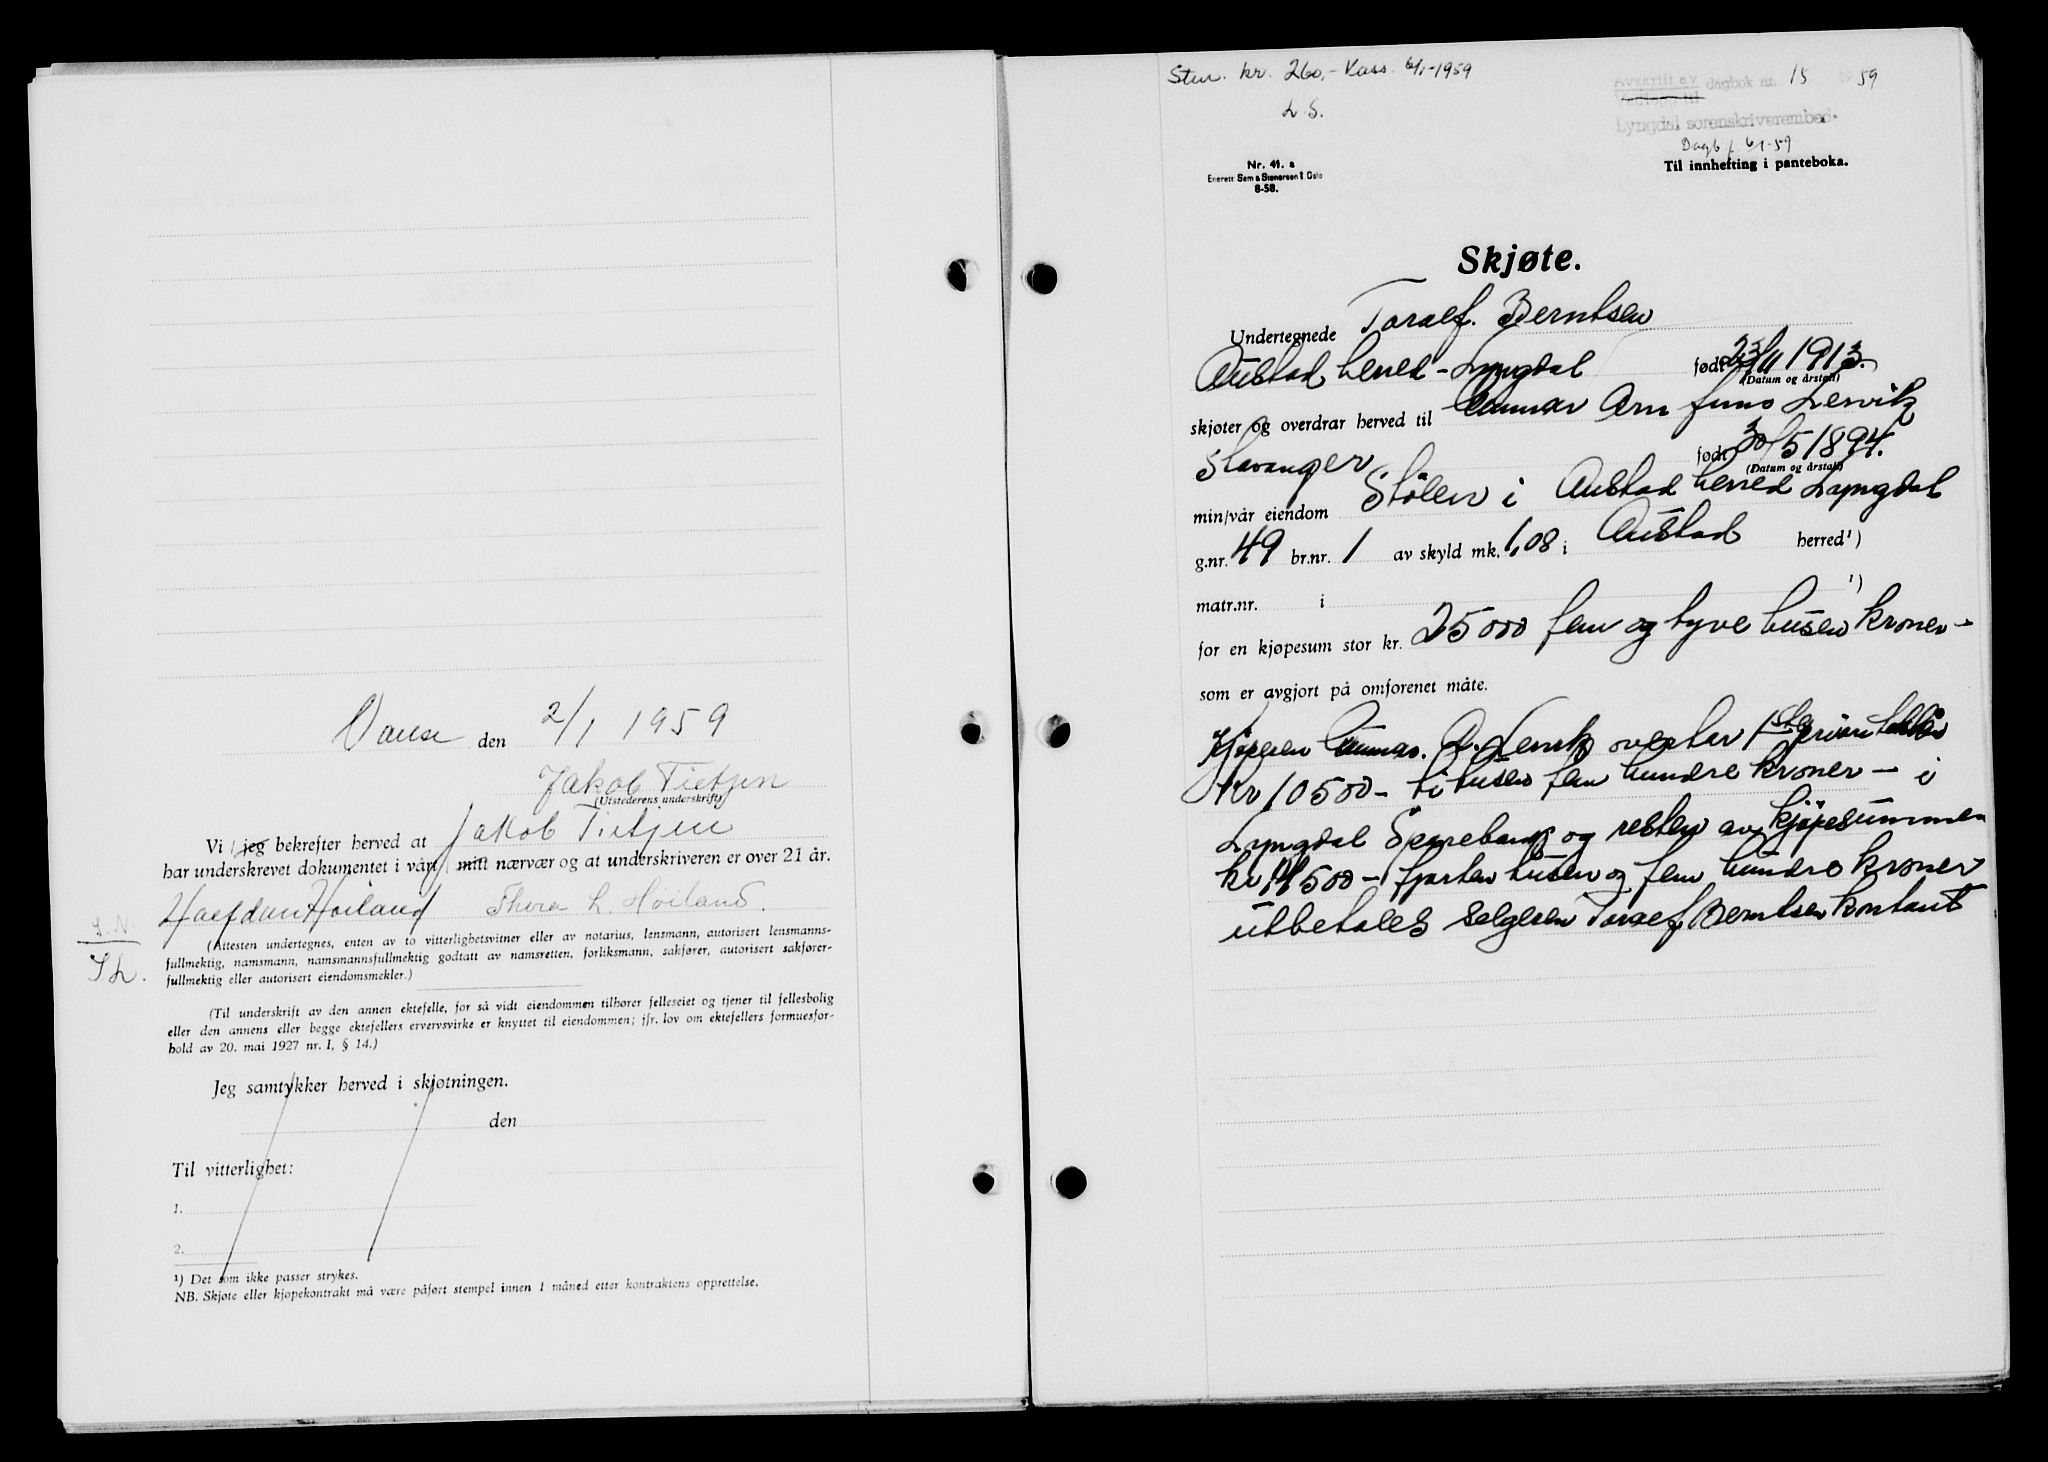 Vanse den 2/1 1959
Jakob Tietjen
(Utstederens underskrift)
Vi / jeg bekrefter herved at Jakob Tietjen
har underskrevet dokumentet i vårt / mitt nærvær og at underskriveren er over 21 år.
Halfdan Høiland Thora L. Høiland.
(Attesten undertegnes, enten av to vitterlighetsvitner eller av notarius, lensmann, autorisert lensmanns-
fullmektig, namsmann, namsmannsfullmektig godtatt av namsretten, forliksmann, sakfører, autorisert sakfører-
fullmektig eller autorisert eiendomsmekler.)
(Til underskrift av den annen ektefelle, for så vidt eiendommen tilhører felleseiet og tjener til fellesbolig
eller den annens eller begge ektefellers ervervsvirke er knyttet til eiendommen; jfr. lov om ektefellers formuesfor-
hold av 20. mai 1927 nr. 1, § 14.)
Jeg samtykker herved i skjøtningen.
den
Til vitterlighet:
1.
2.
¹) Det som ikke passer strykes.
NB. Skjøte eller kjøpekontrakt må være påført stempel innen 1 måned etter kontraktens opprettelse.
Stm. kr. 260,- Kass. 6/1-1959
L S.
Avskrift av dagbok nr. 15 1959
Lyngdal sorenskriverembed.
Dagb f. 6/1-59
Til innhefting i panteboka.
Nr. 41. a
Enerett: Sem & Stenersen A/S Oslo
8-58.
Skjøte.
Undertegnede Toralf. Berntsen
Austad herred - Lyngdal født 23/11 1913.
(Datum og årstall)
skjøter og overdrar herved til Gunnar Arn Lervik
Stavanger født 30/5 1894.
(Datum og årstall)
min/vår eiendom Stölen i Austad herred Lyngdal
g.nr. 49 br.nr. 1 av skyld mk. 1,08 i Austad herred¹)
matr.nr. i ¹)
for en kjøpesum stor kr. 25000 fem og tyve tusen kroner -
som er avgjort på omforenet måte.
Kjøperen Gunnar. A. Lervik overtar 1ste prioritet
Kr 10500 - ti tusen fem hundre kroner - i
Lyngdal Sparebank og resten av kjøpesummen
kr 14500 - fjorten tusen og fem hundre kroner
utbetales selgeren Toralf Berntsen kontant